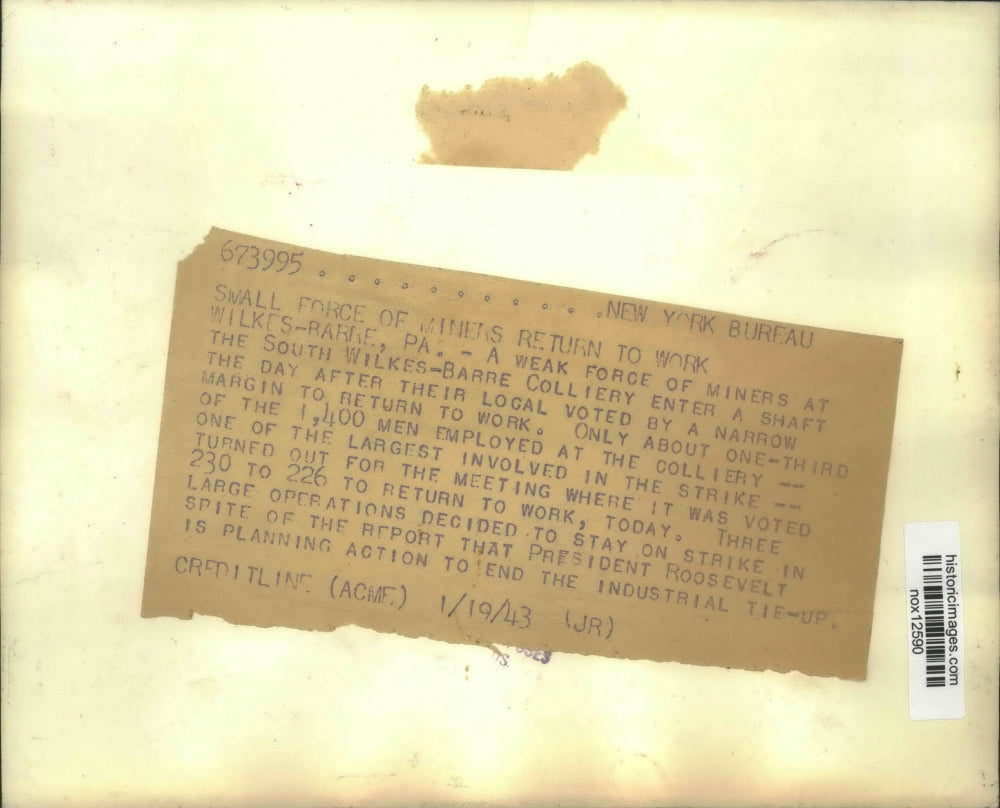 673995 . . . . . . . . . . .NEW YORK BUREAU
SMALL FORCE OF MINERS RETURN TO WORK
WILKES-BARRE, PA. - A WEAK FORCE OF MINERS AT
THE SOUTH WILKES-BARRE COLLIERY ENTER A SHAFT
THE DAY AFTER THEIR LOCAL VOTED BY A NARROW
MARGIN TO RETURN TO WORK. ONLY ABOUT ONE-THIRD
OF THE 1,400 MEN EMPLOYED AT THE COLLIERY --
ONE OF THE LARGEST INVOLVED IN THE STRIKE --
TURNED OUT FOR THE MEETING WHERE IT WAS VOTED
230 TO 226 TO RETURN TO WORK, TODAY. THREE
LARGE OPERATIONS DECIDED TO STAY ON STRIKE IN
SPITE OF THE REPORT THAT PRESIDENT ROOSEVELT
IS PLANNING ACTION TO END THE INDUSTRIAL TIE-UP.
CREDITLINE (ACME) 1/19/43 (JR)
historicimages.com
nox12590